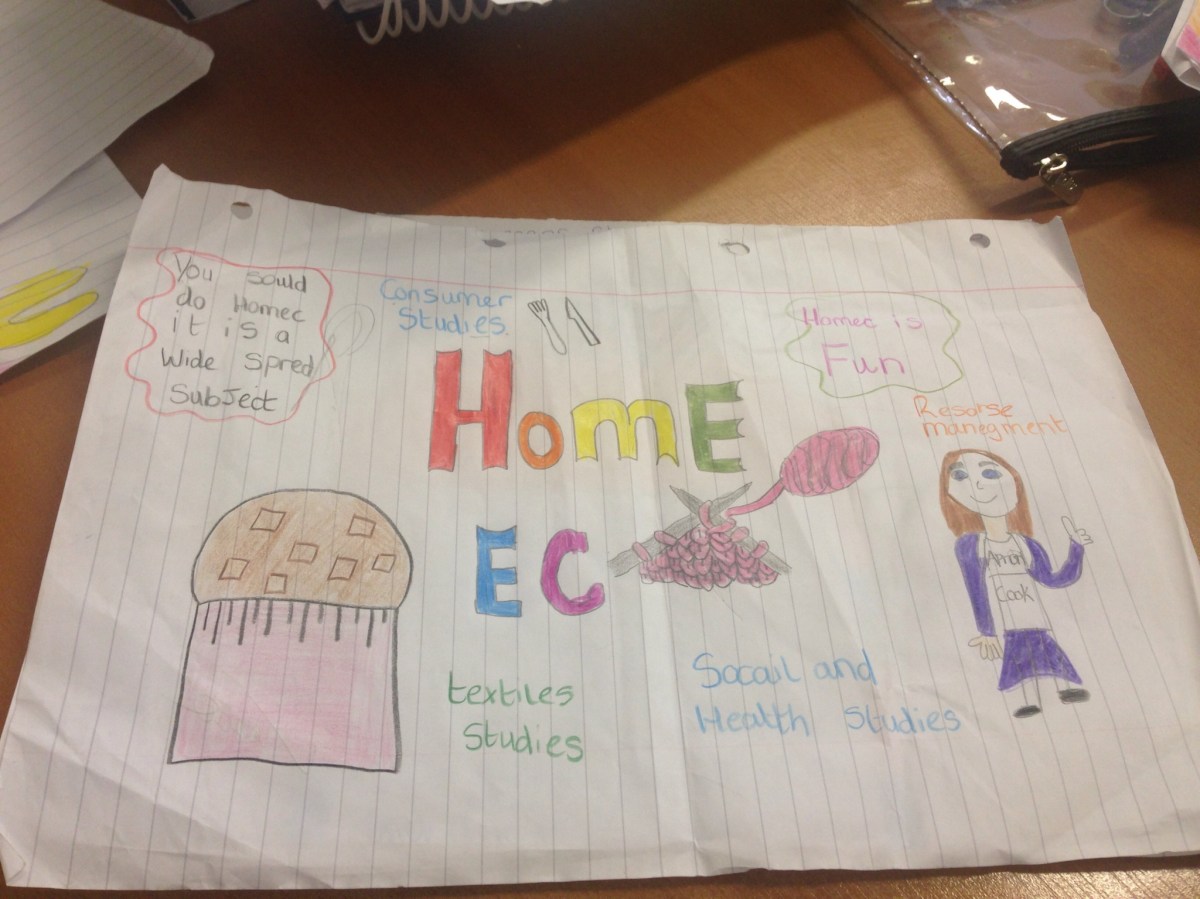 You sould
do Homec
it is a
Wide Spred
Subject
Consumer
Studies.
Homec is
Fun
Resorse
manegment
Home
EC
Apron
Cook
textiles
Studies
Socail and
Health Studies